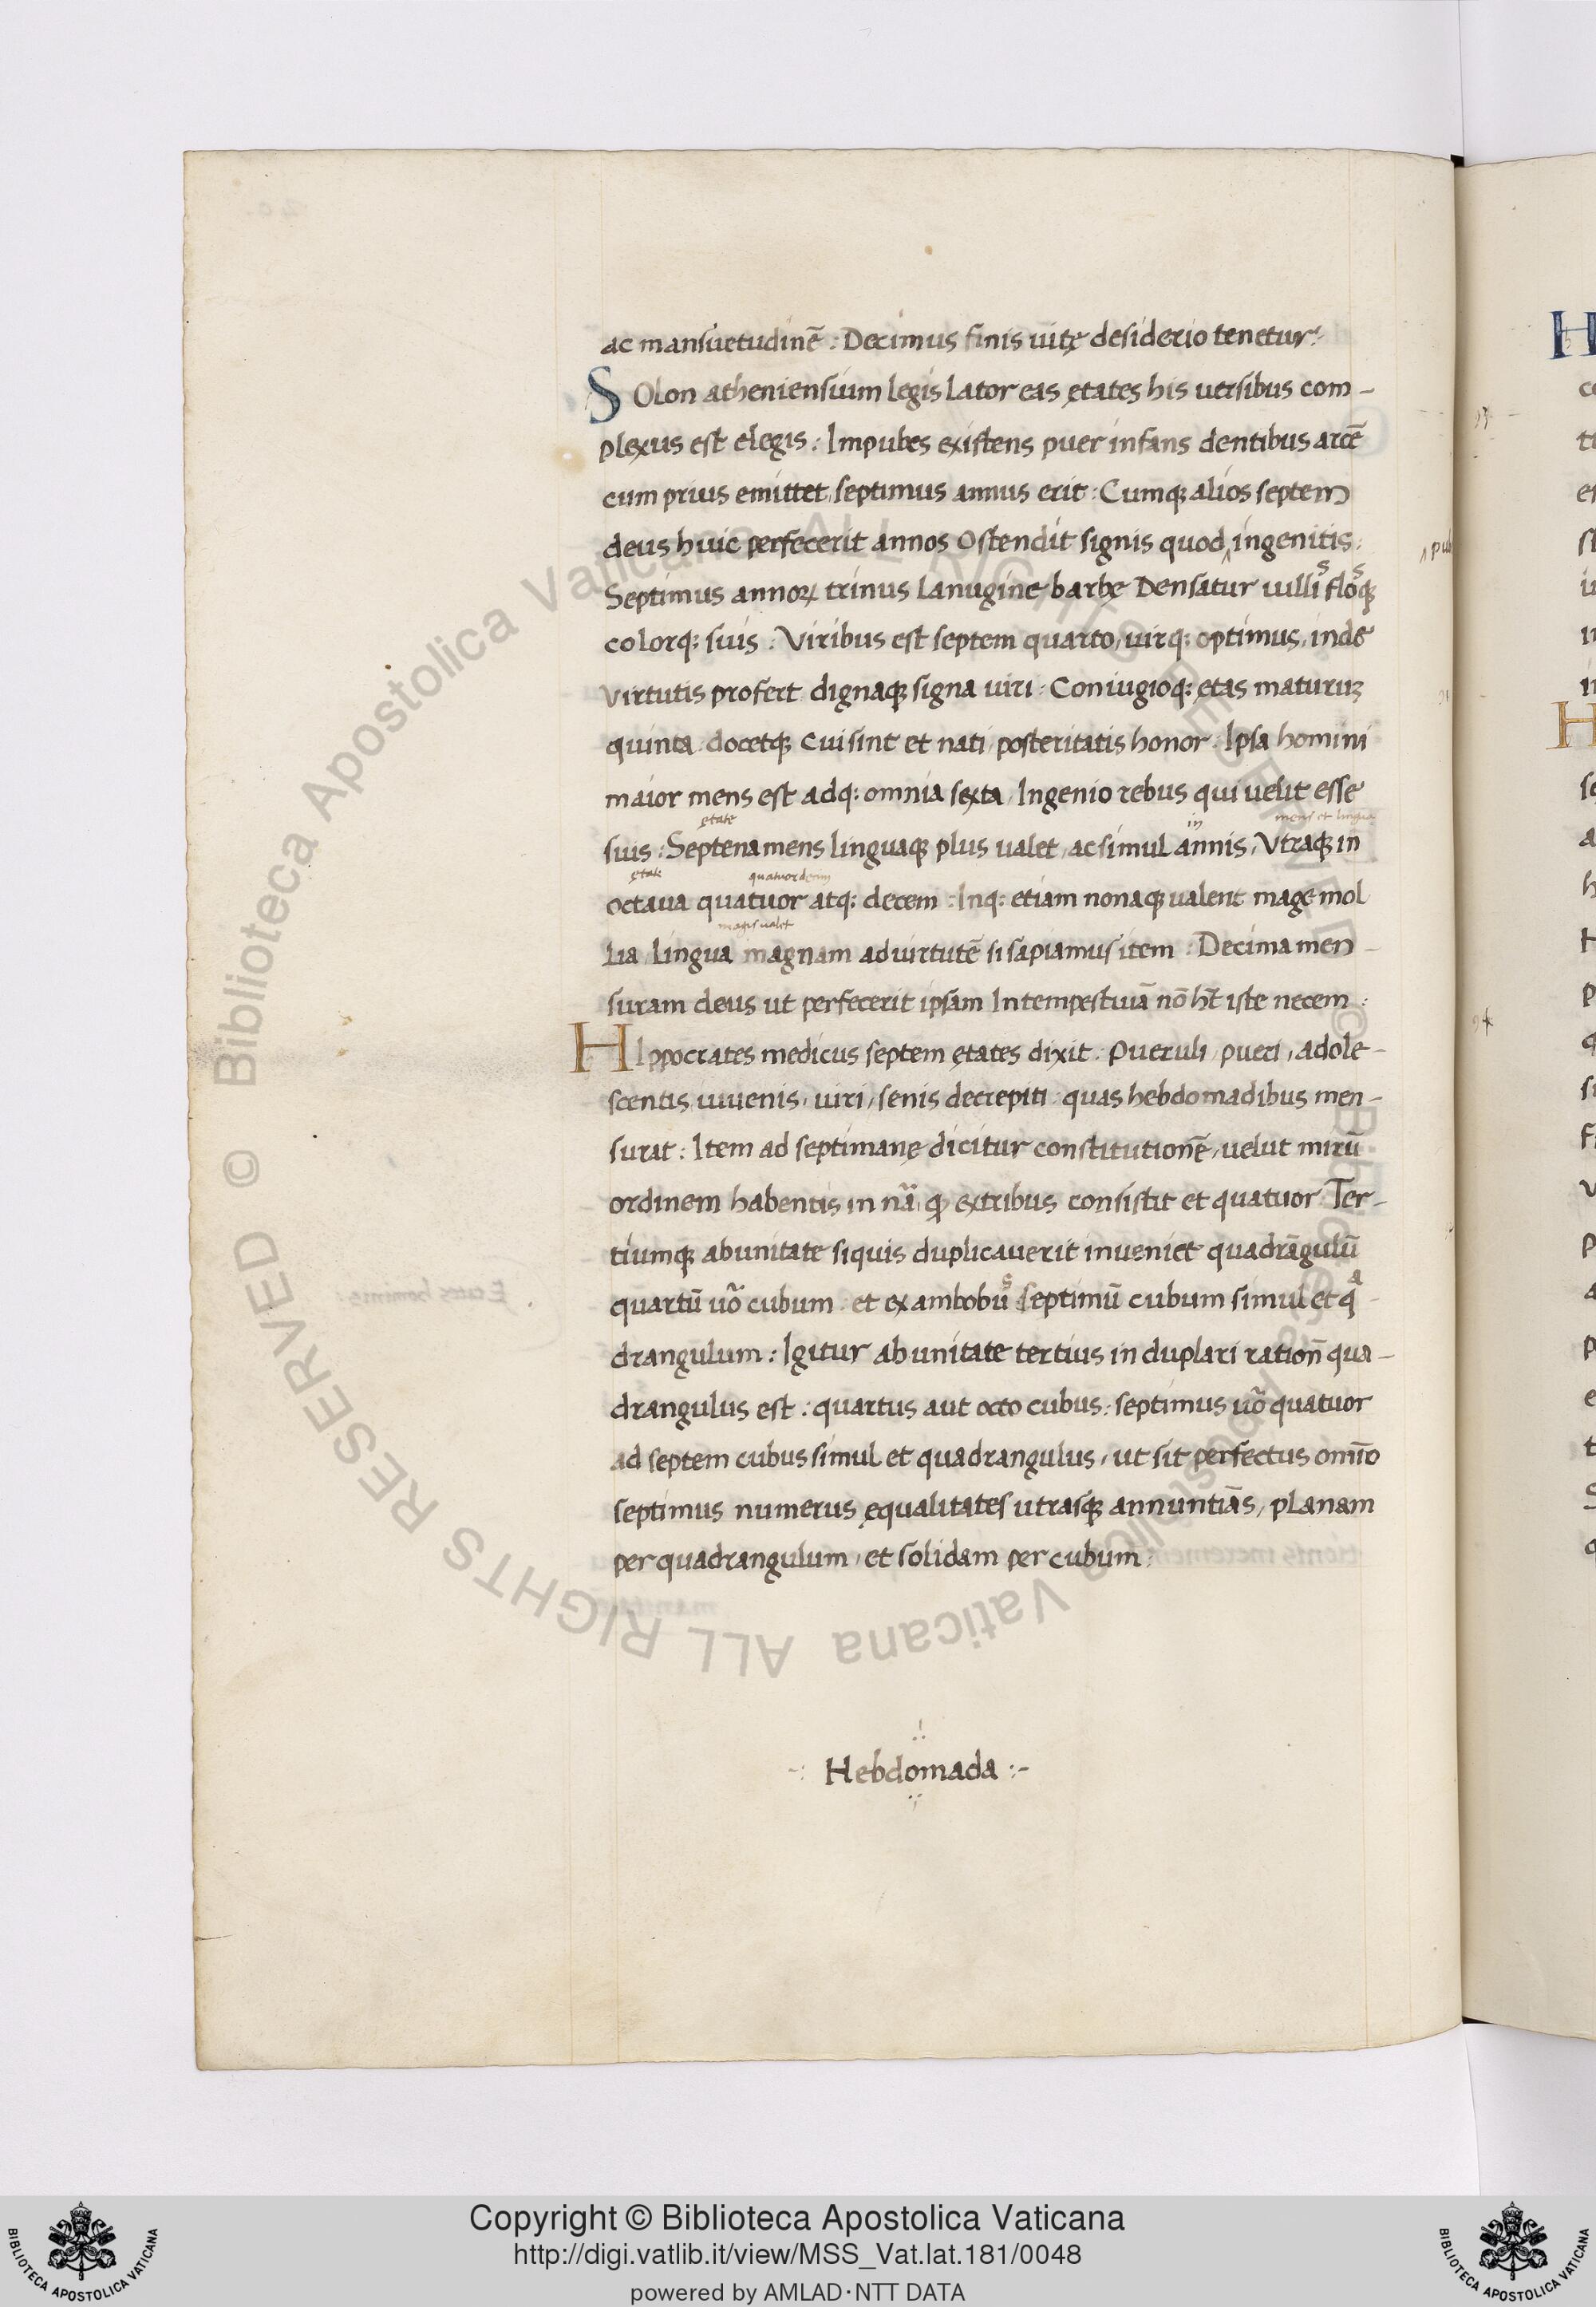 ac mansuetudinē : Decimus finis uitę desiderio tenetur :
SOlon atheniensium legis lator eas ętates his uersibus com-
plexus est elegis : Impubes existens puer infans dentibus arcē
cum prius emittet, septimus annus erit : Cumq; alios septem
deus huic perfecerit annos Ostendit signis quod ‸ ingenitis :
‸ pub
Septimus annoꝝ trinus lanugine barbę Densatur uilliˢ floˢq;
colorq; suis : Viribus est septem quarto, uirq; optimus, inde
Virtutis profert dignaq; signa uiri : Coniugioq; ętas maturuz
quinta docetq; Cui sint et nati, posteritatis honor : Ipsa homini
maior mens est adq; omnia sexta, Ingenio rebus qui uelit esse
ętate in mens et lingua
suis : Septena mens linguaq; plus ualet, ac simul annis, Vtraq; in
ętate quatuordecim
octaua quatuor atq; decem : Inq; etiam nonaq; ualent mage mol
magis ualet
lia, lingua magnam ad uirtutē si sapiamus item : Decima men-
suram deus ut perfecerit ipsam Intempestiuā nō hт̄ iste necem :
HIppocrates medicus septem ętates dixit : Pueruli, pueri, adole-
scentis, iuuenis, uiri, senis decrepiti quas hebdomadibus men-
surat : Item ad septimanę dicitur constitutionē, uelut mirū
ordinem habentis in nāa, ꝙ ex tribus consistit et quatuor Ter-
tiumq; ab unitate siquis duplicauerit inueniet quadrāgulū
quartū uō cubum et ex ambobuˢ septimū cubum simul et qᵃ
drangulum : Igitur ab unitate tertius in duplari ration̄ qua-
drangulus est : quartus aut octo cubus : septimus uō quatuor
ad septem cubus simul et quadrangulus, ut sit perfectus omīo
septimus numerus ęqualitates utrasq; annuntiās, planam
per quadrangulum, et solidam per cubum :
Hebdomada
Copyright © Biblioteca Apostolica Vaticana
http://digi.vatlib.it/view/MSS_Vat.lat.181/0048
powered by AMLAD·NTT DATA
BIBLIOTECA APOSTOLICA VATICANA
BIBLIOTECA APOSTOLICA VATICANA
© Biblioteca Apostolica Vaticana ALL RIGHTS RESERVED © Biblioteca Apostolica Vaticana ALL RIGHTS RESERVED